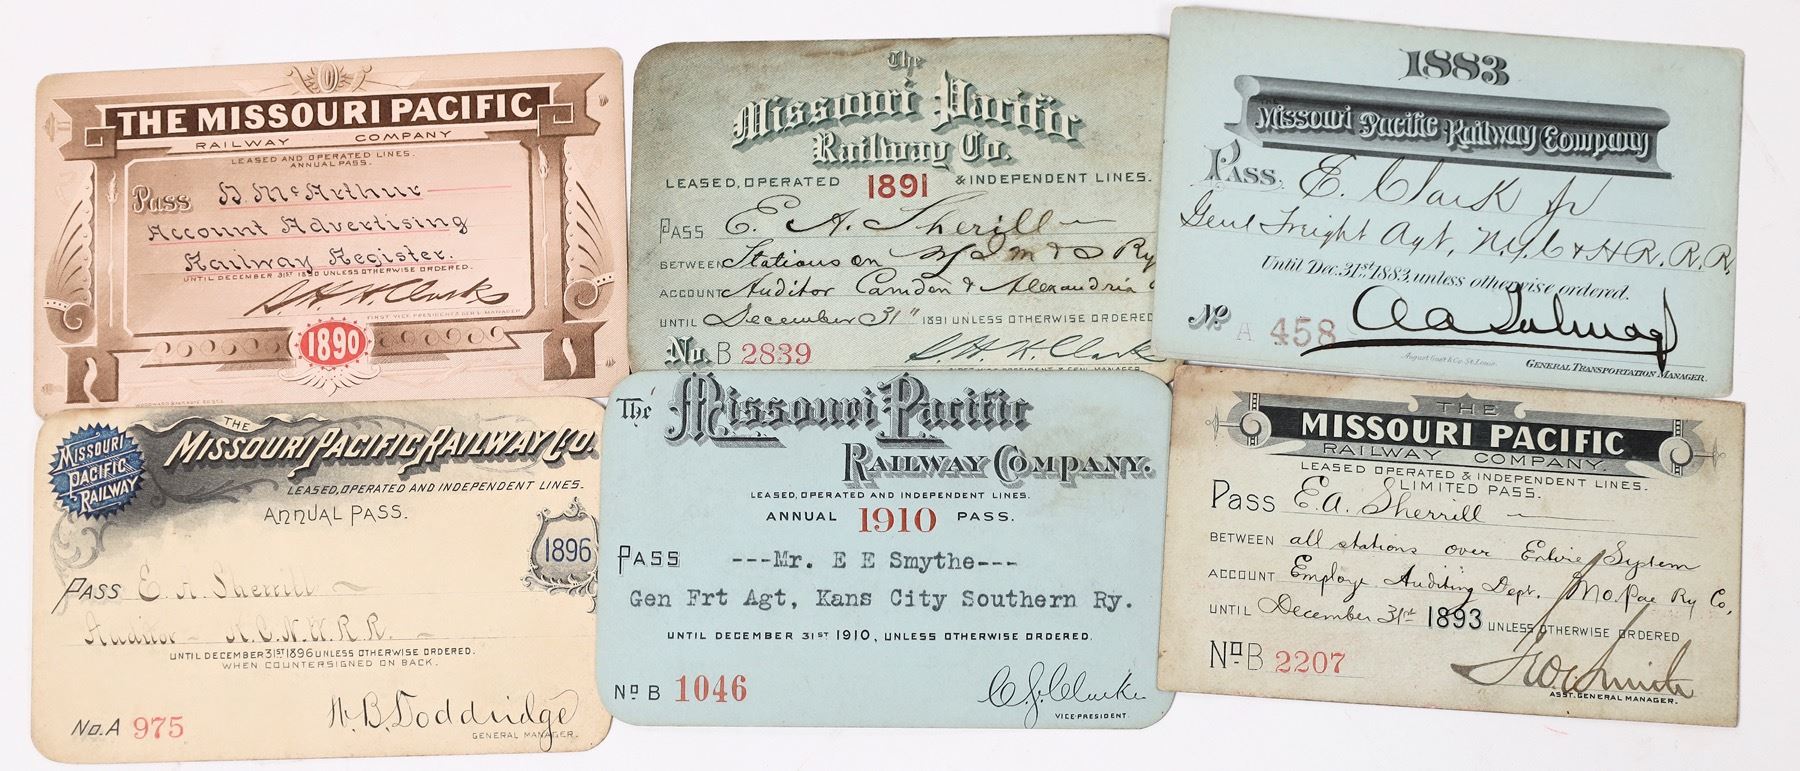 THE MISSOURI PACIFIC
RAILWAY COMPANY
LEASED AND OPERATED LINES.
ANNUAL PASS.
Pass D. McArthur
Account Advertising
Railway Register.
UNTIL DECEMBER 31ST 1890 UNLESS OTHERWISE ORDERED.
S. H. H. Clark
FIRST VICE PRESIDENT & GEN'L MANAGER.
1890
The
Missouri Pacific
Railway Co.
LEASED, OPERATED 1891 & INDEPENDENT LINES.
PASS E. A. Sherill
BETWEEN Stations on Ry
ACCOUNT Auditor Camden & Alexandria
UNTIL December 31" 1891 UNLESS OTHERWISE ORDERED
No. B 2839
S. H. H. Clark
FIRST VICE PRESIDENT & GEN'L MANAGER
1883
THE
Missouri Pacific Railway Company
PASS E. Clark Jr
Genl Freight Agt, N.Y.C & H R. R. R.
Until Dec. 31st, 1883, unless otherwise ordered.
No A 458
A A Talmage
August Gast & Co. St. Louis.
GENERAL TRANSPORTATION MANAGER.
MISSOURI
PACIFIC
RAILWAY
THE
MISSOURI PACIFIC RAILWAY CO.
LEASED, OPERATED AND INDEPENDENT LINES.
ANNUAL PASS.
1896
PASS E. A. Sherrill
Auditor R. R.
UNTIL DECEMBER 31ST 1896 UNLESS OTHERWISE ORDERED.
WHEN COUNTERSIGNED ON BACK.
No. A 975
W. B. Doddridge
GENERAL MANAGER.
The Missouri Pacific
RAILWAY COMPANY.
LEASED, OPERATED AND INDEPENDENT LINES.
ANNUAL 1910 PASS.
PASS ---Mr. E E Smythe---
Gen Frt Agt, Kans City Southern Ry.
UNTIL DECEMBER 31ST 1910, UNLESS OTHERWISE ORDERED.
No B 1046
C. S. Clarke
VICE-PRESIDENT.
THE
MISSOURI PACIFIC
RAILWAY COMPANY.
LEASED OPERATED & INDEPENDENT LINES.
LIMITED PASS.
Pass E. A. Sherrill
BETWEEN all stations over Entire System
ACCOUNT Employe Auditing Dept. Mo. Pac Ry Co,
UNTIL December 31st 1893 UNLESS OTHERWISE ORDERED
No B 2207
Smith
ASST. GENERAL MANAGER.